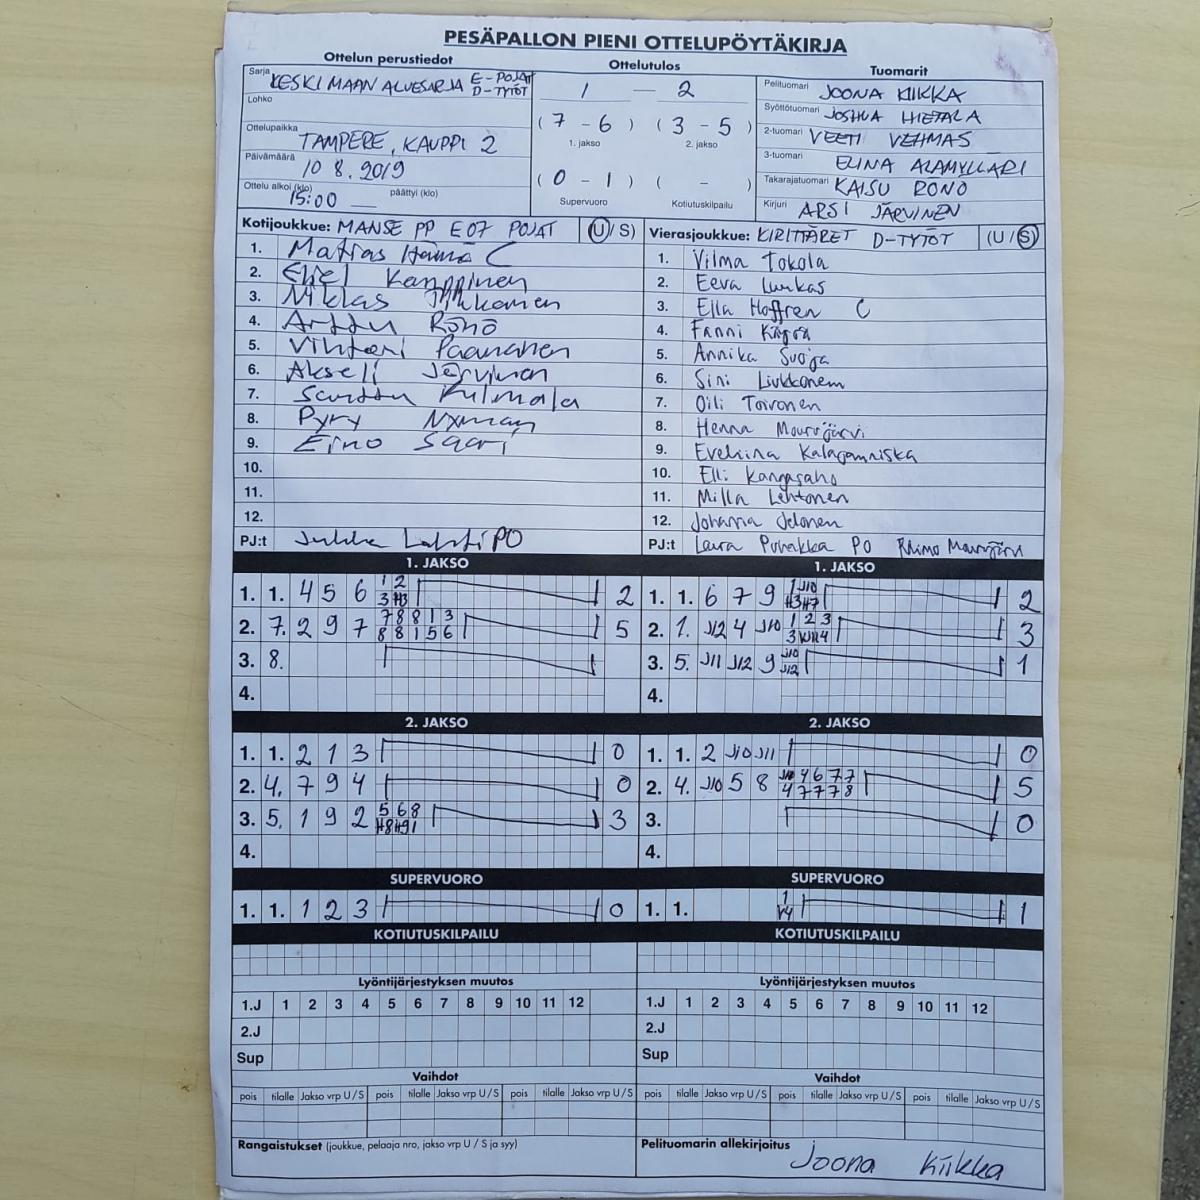 PESÄPALLON PIENI OTTELUPÖYTÄKIRJA
Ottelun perustiedot
Ottelutulos
Tuomarit
Sarja KESKIMAAN ALUESARJA E-POJAT D-TYTÖT
Lohko
Ottelupaikka TAMPERE, KAUPPI 2
Päivämäärä 10 8. 2019
Ottelu alkoi (klo) 15:00 päättyi (klo)
1 — 2
(7 - 6) (3 - 5)
1. jakso 2. jakso
(0 - 1) ( - )
Supervuoro Kotiutuskilpailu
Pelituomari JOONA KIIKKA
Syöttötuomari JOSHUA HIETALA
2-tuomari VEETI VEHMAS
3-tuomari ELINA ALAMYLLÄRI
Takarajatuomari KAISU RÖNÖ
Kirjuri ARSI JÄRVINEN
Kotijoukkue: MANSE PP E07 POJAT (U/S)
1. Matias Hämä C
2. Eliel Kamppinen
3. Niklas
4. Arttu Rönö
5. Vihtori Paananen
6. Akseli Järvinen
7. Santtu Kulmala
8. Pyry Nyman
9. Eino Saari
10.
11.
12.
PJ:t Jukka Lahti PO
Vierasjoukkue: KIRITTÄRET D-TYTÖT (U/S)
1. Vilma Tokola
2. Eeva Luukas
3. Ella Hoffren C
4. Fanni
5. Annika Suoja
6. Sini Liukkonen
7. Oili Toivonen
8. Henna Mourujärvi
9. Eveliina Kalajanniska
10. Elli Kangasaho
11. Milla Lehtonen
12. Johanna Jelonen
PJ:t Laura Puhakka PO Rhimo Mourujärvi
1. JAKSO
1. 1. 4 5 6 1 2 2
3 H3
2. 7. 2 9 7 7 8 8 1 3 5
8 8 1 5 6
3. 8.
4.
1. JAKSO
1. 1. 6 7 9 1 J10 2
H3 H7
2. 1. J12 4 J10 1 2 3 3
3
3. 5. J11 J12 9 J10 1
J12
4.
2. JAKSO
1. 1. 2 1 3 0
2. 4. 7 9 4 0
3. 5. 1 9 2 5 6 8 3
H8 H9 1
4.
2. JAKSO
1. 1. 2 J10 J11 0
2. 4. J10 5 8 J10 4 6 7 7 5
4 7 7 7 8
3. 0
4.
SUPERVUORO
1. 1. 1 2 3 0
SUPERVUORO
1. 1. 1 1
V4
KOTIUTUSKILPAILU
KOTIUTUSKILPAILU
Lyöntijärjestyksen muutos
1.J 1 2 3 4 5 6 7 8 9 10 11 12
2.J
Sup
Lyöntijärjestyksen muutos
1.J 1 2 3 4 5 6 7 8 9 10 11 12
2.J
Sup
Vaihdot
pois tilalle Jakso vrp U/S pois tilalle Jakso vrp U/S pois tilalle Jakso vrp U/S
Vaihdot
pois tilalle Jakso vrp U/S pois tilalle Jakso vrp U/S pois tilalle Jakso vrp U/S
Rangaistukset (joukkue, pelaaja nro, jakso vrp U / S ja syy)
Pelituomarin allekirjoitus
Joona Kiikka